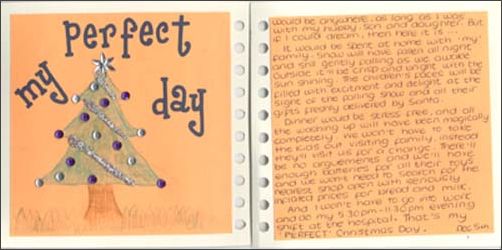 my perfect day
would be anywhere, as long as I was
with my hubby, son and daughter. But
if I could dream, then here it is...
It would be spent at home with 'my'
family. Snow will have fallen all night
and still gently falling as we awake
outside it'll be crisp and bright with the
sun shining. The children's faces will be
filled with excitment and delight at the
sight of the falling snow and all their
gifts freshly delivered by Santa.
Dinner would be stress free, and all
the washing up will have been magically
completely. We won't have to take
the kids out visiting family, instead
they'll visit us for a change. There'll
be no arguements and we'll have
enough batteries for all their toys
and we wont need to search for the
nearest shop open with seriously
inflated prices for bread and milk.
And I won't have to go into work
and do my 5.30pm - 11.30pm evening
shift at the hospital. That's my
'PERFECT' Christmas Day.